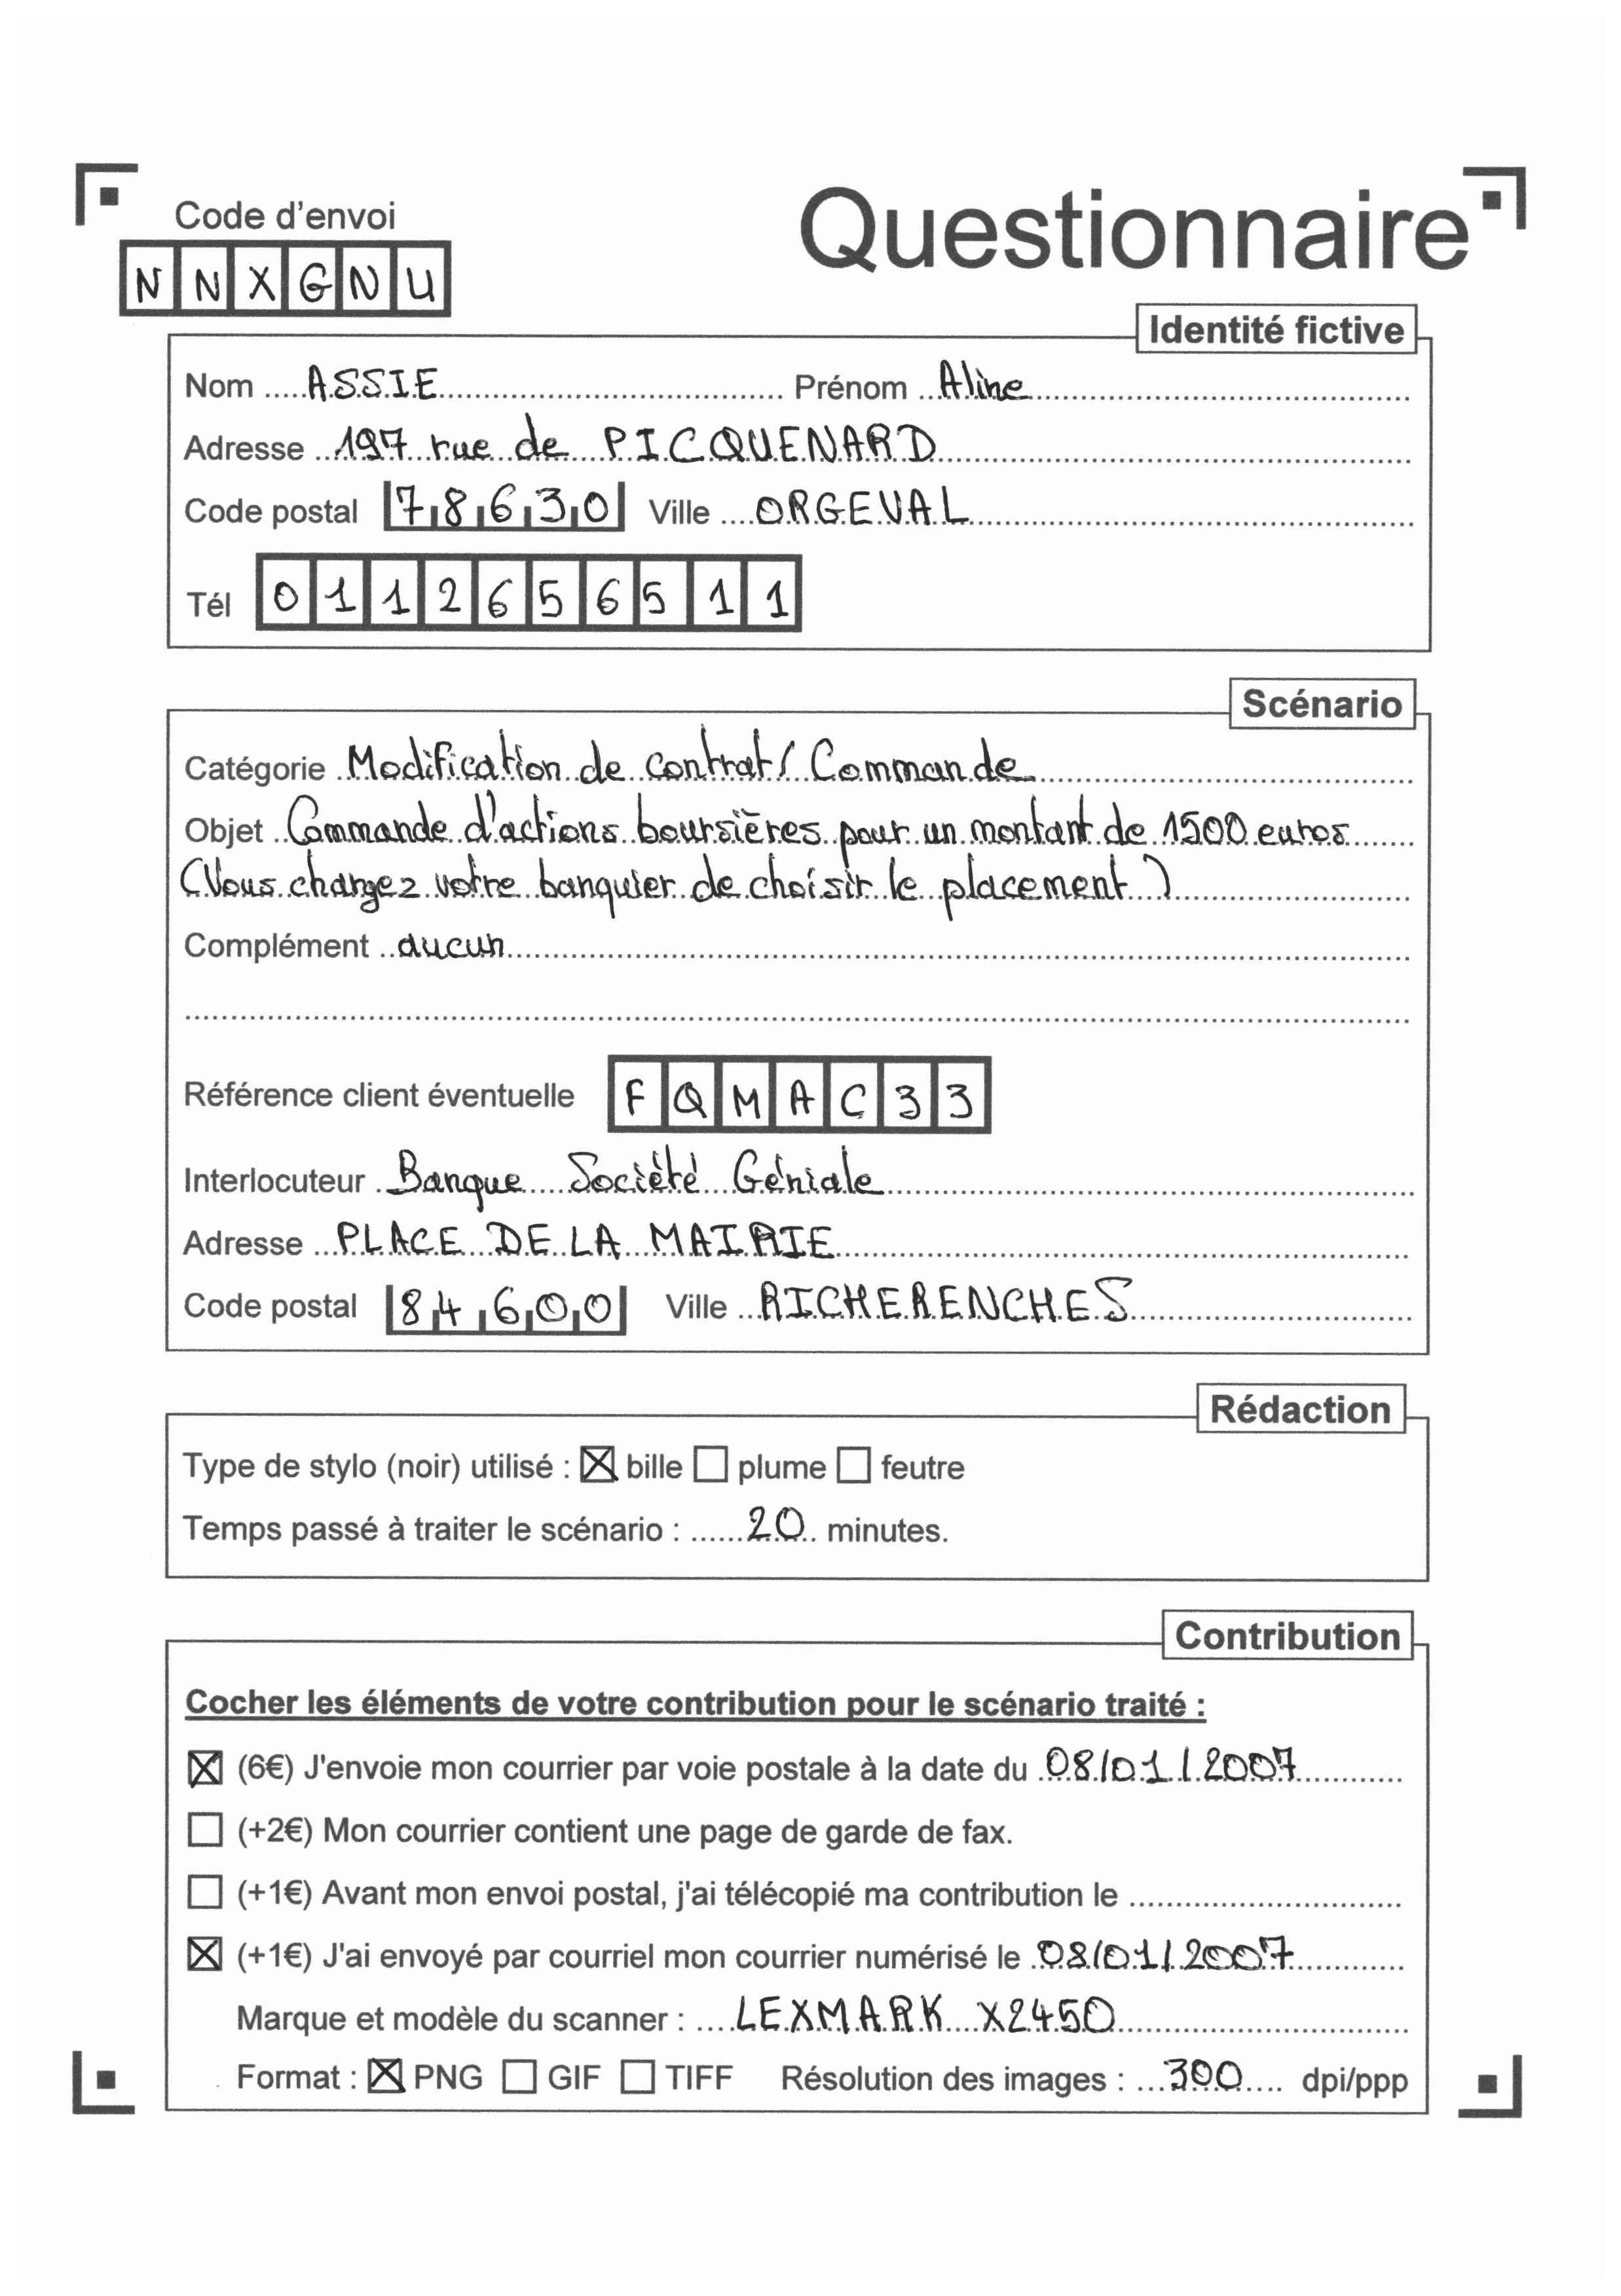 Code d'envoi
Questionnaire
NNXGNU
Identité fictive
Nom ASSIE Prénom Aline
Adresse 197 rue de PICQUENARD
Code postal 78630 Ville ORGEVAL
Tél 0112656511
Scénario
Catégorie Modification de contrat / Commande
Objet Commande d'actions boursières pour un montant de 1500 euros
(Vous chargez votre banquier de choisir le placement)
Complément aucun
Référence client éventuelle FQMAC33
Interlocuteur Banque Société Géniale
Adresse PLACE DE LA MAIRIE
Code postal 84600 Ville RICHERENCHES
Rédaction
Type de stylo (noir) utilisé : ☒ bille ☐ plume ☐ feutre
Temps passé à traiter le scénario : 20 minutes.
Contribution
Cocher les éléments de votre contribution pour le scénario traité :
☒ (6€) J'envoie mon courrier par voie postale à la date du 08/01/2007
☐ (+2€) Mon courrier contient une page de garde de fax.
☐ (+1€) Avant mon envoi postal, j'ai télécopié ma contribution le
☒ (+1€) J'ai envoyé par courriel mon courrier numérisé le 08/01/2007
Marque et modèle du scanner : LEXMARK X2450
Format : ☒ PNG ☐ GIF ☐ TIFF Résolution des images : 300 dpi/ppp